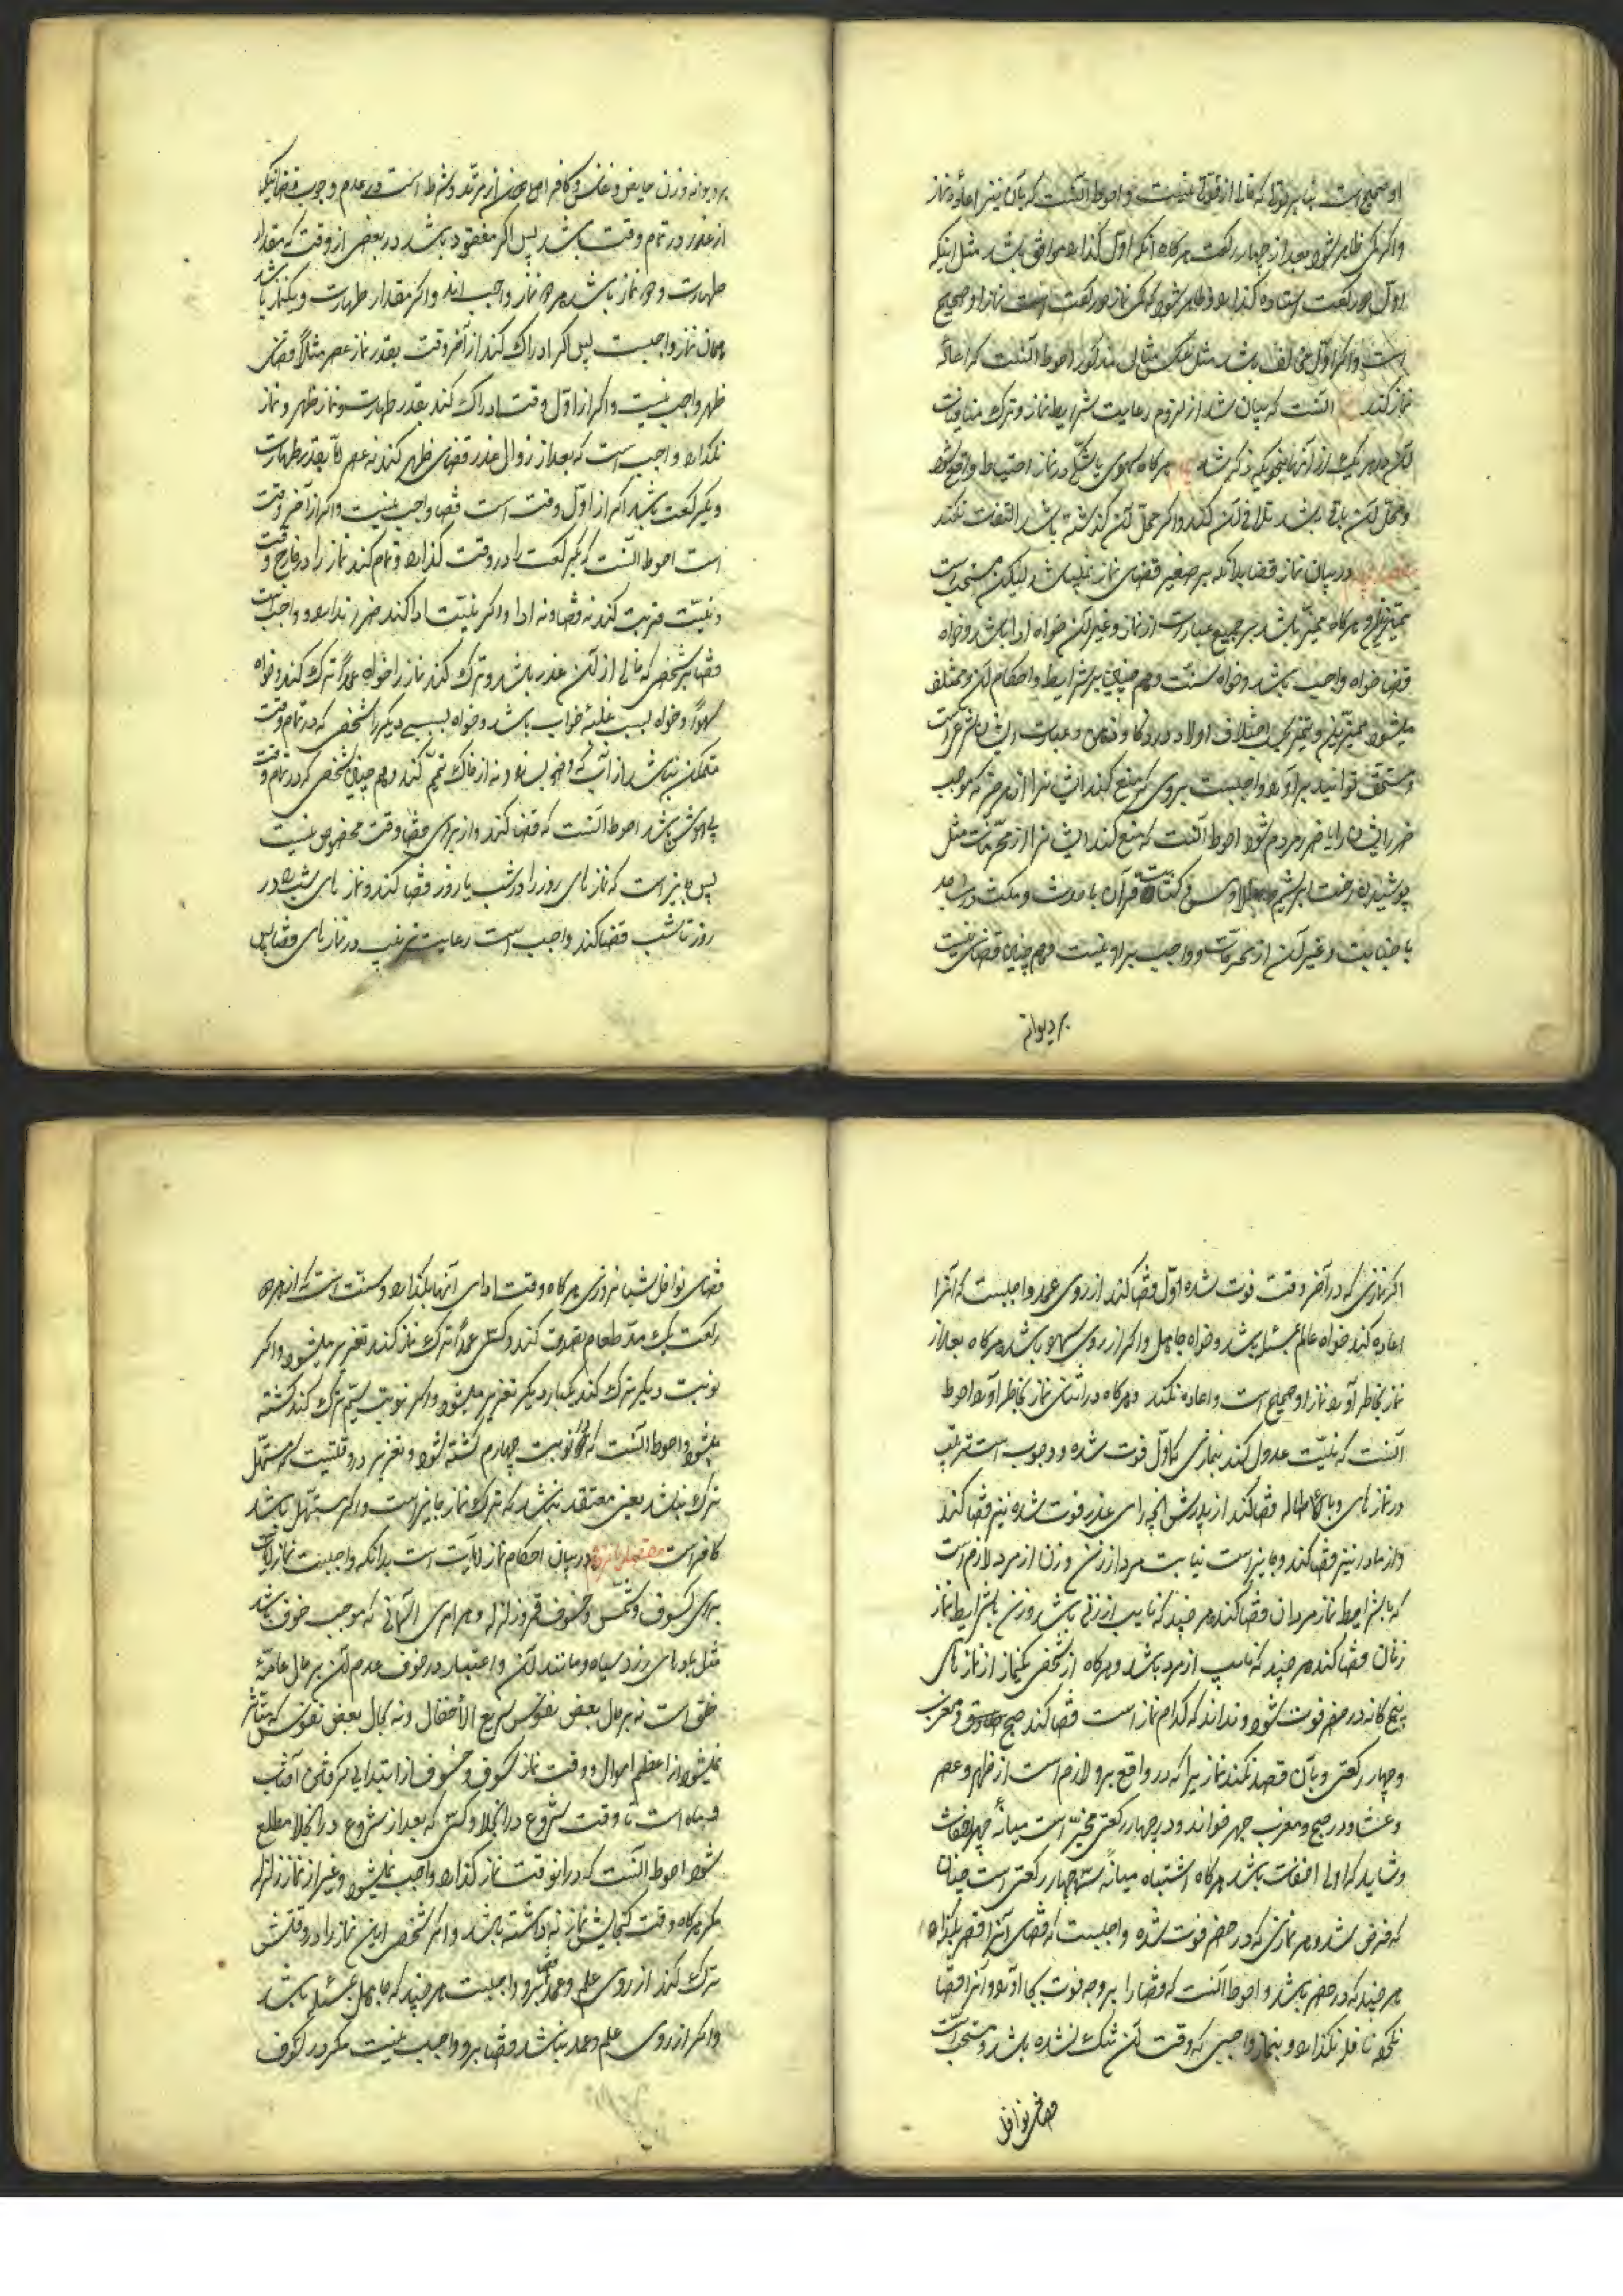 او صحیح است بنابر قولی که خالی از قوتی نیست و احوط آنست که بآن نیز اعاده نماز
و اگر ظاهر شود بعد از چهار رکعت هرگاه آنکه اول گذارده موافق باشد مثل اینکه
اول دو رکعت ایستاده گذارده و ظاهر شود که نماز دو رکعت است نماز او صحیح
است و اگر اول مخالف باشد مثل عکس مثال مذکور احوط آنست که اعاده
نماز کند آنست که بیان شد از لزوم رعایت شرایط نماز و ترک منافیات
در هر یک از آنها بنحویکه ذکر شد هرگاه سهوی یا شکی در نماز احتیاط واقع شود
و محل آن باقی باشد تلافی آن کند و اگر محل آن گذشته باشد التفات نکند
در بیان نماز قضا بدانکه بر صغیر قضای نماز نمیباشد لیکن مستحب است
هرگاه ممیز باشد بر جمیع عبادات از نماز و غیر آن خواه ادا باشد و خواه
قضا خواه واجب باشد و خواه سنت و هم چنین بر شرایط و احکام آن و مختلف
میشود تمییز و تمرین باختلاف اولاد در ذکا و فهم و عبادت ایشان شرعی است
و مستحق ثوابند بر او و واجبست بر ولی که منع کند ایشانرا از هر چه که موجب
ضرر ایشان یا ضرر مردم شود احوط آنست که منع کند ایشانرا از محرمات مثل
پوشیدن رخت ابریشم و طلا و مس کتابت قرآن با حدث و مکث در مساجد
با جنابت و غیر آن از محرمات و واجب بر او نیست و هم چنین قضای نیست
بر دیوانه
بر دیوانه و زن حایض و نفسا و کافر اصلی نه از مرتد و شرط است در عدم وجوب قضا اینکه
از عذر در تمام وقت باشد پس اگر مفقود باشد در بعض از وقت که مقدار
طهارت و دو نماز باشد هر دو نماز واجب اند و اگر مقدار طهارت و یکنماز باشد
همان نماز واجبست پس اگر ادراک کند از آخر وقت بقدر نماز عصر مثلاً قضای
ظهر واجب نیست و اگر از اول وقت ادراک کند بقدر طهارت و نماز ظهر و نماز
نگذارد واجب است که بعد از زوال عذر قضای ظهر کند نه عصر اما بقدر طهارت
و یکرکعت باشد اگر از اول وقت است قضا واجب نیست و اگر از آخر وقت
است احوط آنست که یکرکعت را در وقت گذارد و تمام کند نماز را در خارج وقت
و نیت قربت کند نه قضا و نه ادا و اگر نیت ادا کند ضرر ندارد و واجب است
قضا بر شخصی که خالی از آن عذر باشد و ترک کند نماز را خواه عمداً ترک کند و خواه
سهواً و خواه بسبب غلبه خواب باشد و خواه بسببی دیگر شخصی که در تمام وقت
متمکن نباشد از آب که وضو بسازد و نه از خاک تیمم کند و هم چنین شخصی که در تمام وقت
بیهوش باشد احوط آنست که قضا کند و از برای قضا وقت مخصوص نیست
پس جایز است که نماز های روز را در شب یا روز قضا کند و نماز های شب را در
روز تا شب قضا کند واجب است رعایت ترتیب در نماز های قضا پس
اگر نمازی که در آخر وقت فوت شده اول قضا کند از روی عمد واجبست که آنرا
اعاده کند خواه عالم بمسئله باشد و خواه جاهل و اگر از روی سهو باشد هرگاه بعد از
نماز بخاطر آورد نماز او صحیح است و اعاده نکند و هرگاه در اثنای نماز بخاطر آورد احوط
آنست که نیت عدول کند بنمازی که اول فوت شده و وجوب است ترتیب
در نماز های قضا کند از پدرش آنچه برای عذر فوت شده نیز قضا کند
و از مادر نیز قضا کند و جایز است نیابت مرد از زن و زن از مرد لازم است
که بشرایط نماز مردان قضا کند هر چند که نایب از زنی باشد و زن بشرایط نماز
زنان قضا کند هر چند که نایب از مرد باشد و هرگاه از شخصی یکنماز از نماز های
پنج گانه در حضر فوت شود و نداند که کدام نماز است قضا کند صبح و مغرب
و چهار رکعتی و بآن قصد نکند نماز یرا که در واقع برو لازم است از ظهر و عصر
و عشا و در صبح و مغرب جهر خواند و در چهار رکعتی مخیر است میانه جهر و اخفات
و شاید که اولی اخفات باشد هرگاه اشتباه میانه سه چهار رکعتی است چنان
که فرض شد و هر نمازی که در حضر فوت شده واجبست که قضای آنرا بگذارد
هر چند که در حضر باشد و احوط آنست که قضا را بر وجه فوت بجا آورد و آنرا قضا
نکرده نافله نگذارد و بنماز واجبی که وقت آن تنگ نشده باشد و مستحب است
قضای نوافل
قضای نوافل شبانه روزی هرگاه وقت ادای آنها بگذارد و سنت است که از هر دو
رکعت یک مد طعام تصدق کند و کسی که عمداً ترک نماز کند تعزیر میشود و اگر
نوبت دیگر ترک کند یکبار دیگر تعزیر میشود و اگر نوبت سیم ترک کند کشته
میشود و احوط آنست که در نوبت چهارم کشته شود و تعزیر در وقتیست که مستحل
ترک نباشد یعنی معتقد نباشد که ترک نماز جایز است و اگر مستحل باشد
کافر است مقصد پانزدهم در بیان احکام نماز آیات است بدانکه واجبست نماز آیات
برای کسوف شمس و خسوف قمر و زلزله و هر امری آسمانی که موجب خوف باشد
مثل باد های زرد و سیاه و مانند آن و اعتبار در خوف و عدم آن بر حال عامهٔ
خلق است نه بر حال بعض نفوس سریع الانفعال و نه بحال بعض نفوس که متأثر
نمیشود از اعظم اهوال و وقت نماز کسوف و خسوف از ابتدای گرفتن آفتاب
و ماه است تا وقت شروع در انجلا و کسی که بعد از شروع در انجلا مطلع
شود احوط آنست که در آنوقت نماز گذارد و واجب نمیشود غیر از نماز زلزله
مگر هرگاه وقت گنجایش نماز نداشته باشد و اگر شخصی این نماز را در وقتش
ترک کند از روی علم و عمد قضا برو واجبست هر چند که جاهل بمسئله باشد
و اگر از روی علم و عمد نباشد قضا برو واجب نیست مگر در کسوف